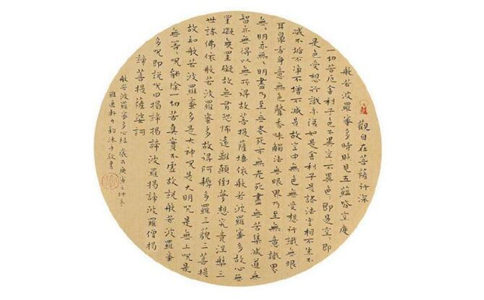 觀自在菩薩行深
般若波羅蜜多時照見五蘊皆空度
一切苦厄舍利子色不異空空不異色色即是空空即
是色受想行識亦復如是舍利子是諸法空相不生不
滅不垢不淨不增不減是故空中無色無受想行識無眼
耳鼻舌身意無色聲香味觸法無眼界乃至無意識界
無無明亦無無明盡乃至無老死亦無老死盡無苦集滅道無
智亦無得以無所得故菩提薩埵依般若波羅蜜多故心無
罣礙無罣礙故無有恐怖遠離顛倒夢想究竟涅槃三
世諸佛依般若波羅蜜多故得阿耨多羅三藐三菩提
故知般若波羅蜜多是大神咒是大明咒是無上咒是
無等等咒能除一切苦真實不虛故說般若波羅蜜
多咒即說咒曰揭諦揭諦波羅揭諦波羅僧揭
諦菩提薩婆訶
般若波羅蜜多心經